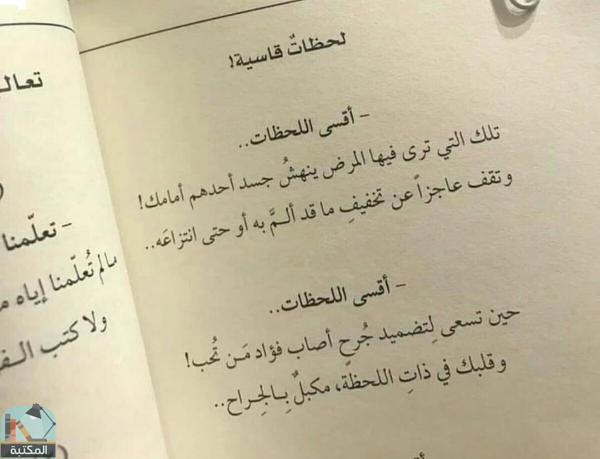 لحظاتٌ قاسية!
- أقسى اللحظات..
تلك التي ترى فيها المرض ينهشُ جسد أحدهم أمامك!
وتقف عاجزاً عن تخفيفِ ما قد ألـمَّ به أو حتى انتزاعَه..
- أقسى اللحظات..
حين تسعى لِتضميد جُرحٍ أصاب فؤاد مَن تُحب!
وقلبك في ذاتِ اللحظة، مكبلٌ بـالجِـراح..
- تعلّمنا
مالم تُعلّمنا إياه
ولا كتب
المكتبة